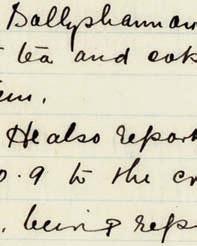 Ballyshannon
tea and cak
em.
He also report
0.9 to the cr
, being rep